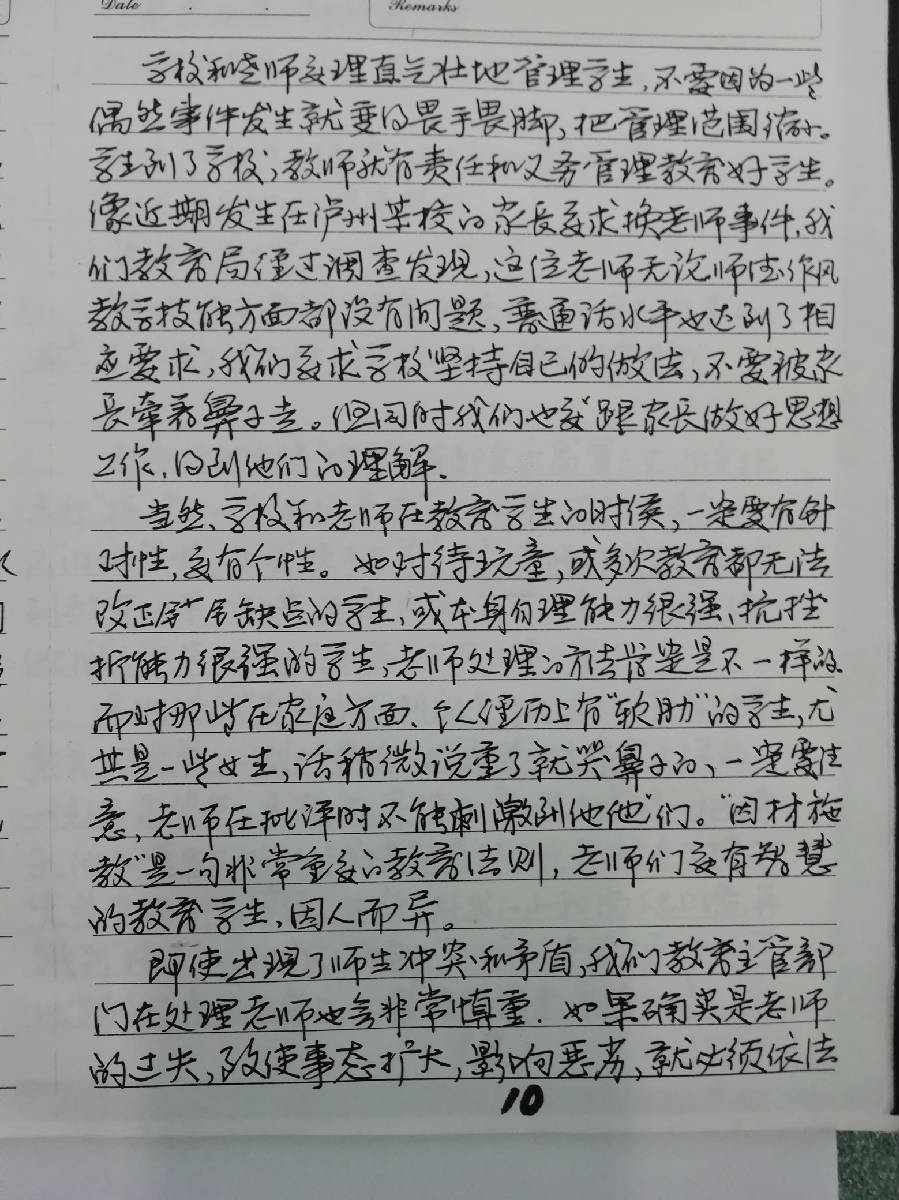 Date
Remarks
学校和老师要理直气壮地管理学生,不要因为一些
偶然事件发生就变得畏手畏脚,把管理范围缩小。
学生到了学校,教师就有责任和义务管理教育好学生。
像近期发生在泸州某校的家长要求换老师事件,我
们教育局经过调查发现,这位老师无论师德作风
教学技能方面都没有问题,普通话水平也达到了相
应要求,我们要求学校坚持自己的做法,不要被家
长牵着鼻子走。但同时我们也要跟家长做好思想
工作,得到他们的理解.
当然,学校和老师在教育学生的时候,一定要有针
对性,要有个性。如对待玩童,或多次教育都无法
改正缺点的学生,或本身自理能力很强、抗挫
折能力很强的学生,老师处理的方法肯定是不一样的
而对那些在家庭方面、个人经历上有“软肋”的学生,尤
其是一些女生,话稍微说重了就哭鼻子的,一定要注
意,老师在批评时不能刺激到他他”们。“因材施
教”是一句非常重要的教育法则,老师们要有智慧
的教育学生,因人而异。
即使出现了师生冲突和矛盾,我们教育主管部
门在处理老师也会非常慎重.如果确实是老师
的过失,致使事态扩大,影响恶劣,就必须依法
10